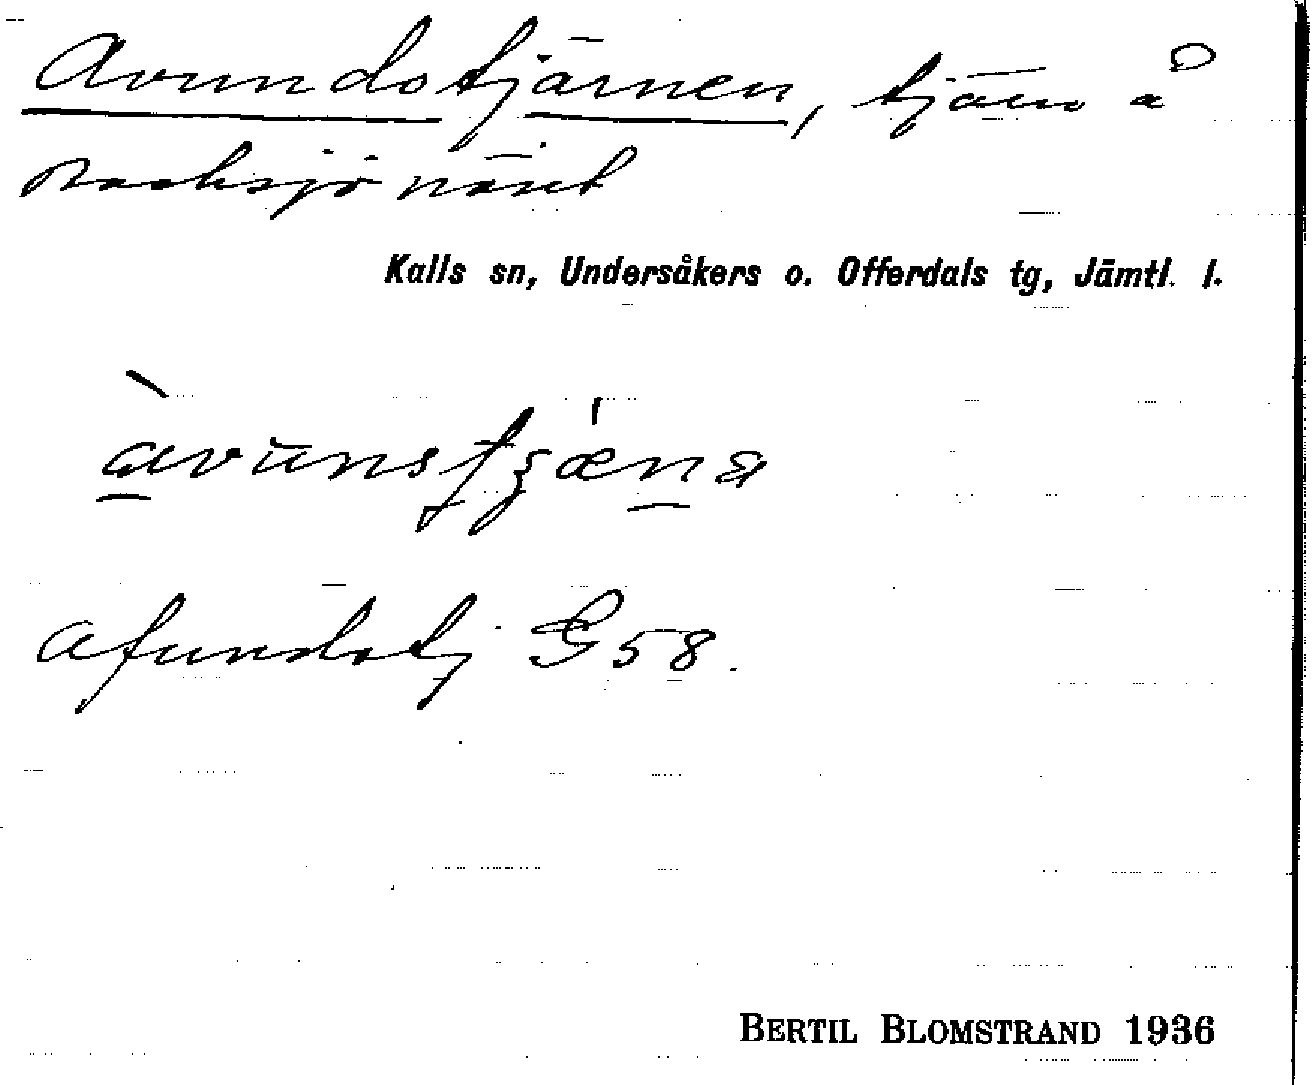 Avundstjärnen, tjärn å
näset
Kalls sn, Undersåkers o. Offerdals tg, Jämtl. l.
Afundstj G 58.
BERTIL BLOMSTRAND 1936